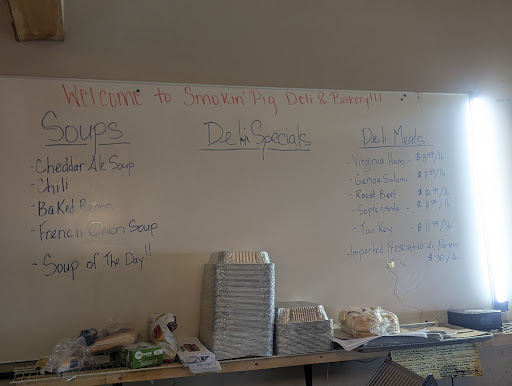 Welcome to Smokin' Pig Deli & Bakery!!!
Soups
- Cheddar Ale Soup
- Chili
- Baked
- French Onion Soup
- Soup of The Day!!
Deli Specials
Deli Meats
- Virginia Ham - /lb
- Genoa Salami - $ 9.99/lb
- Roast Beef $ 12.99/lb
- Sopressata - $ 11.99/lb
- Turkey - $ 11.99/lb
- Imported Prosciutto di Parma
$ 30/lb